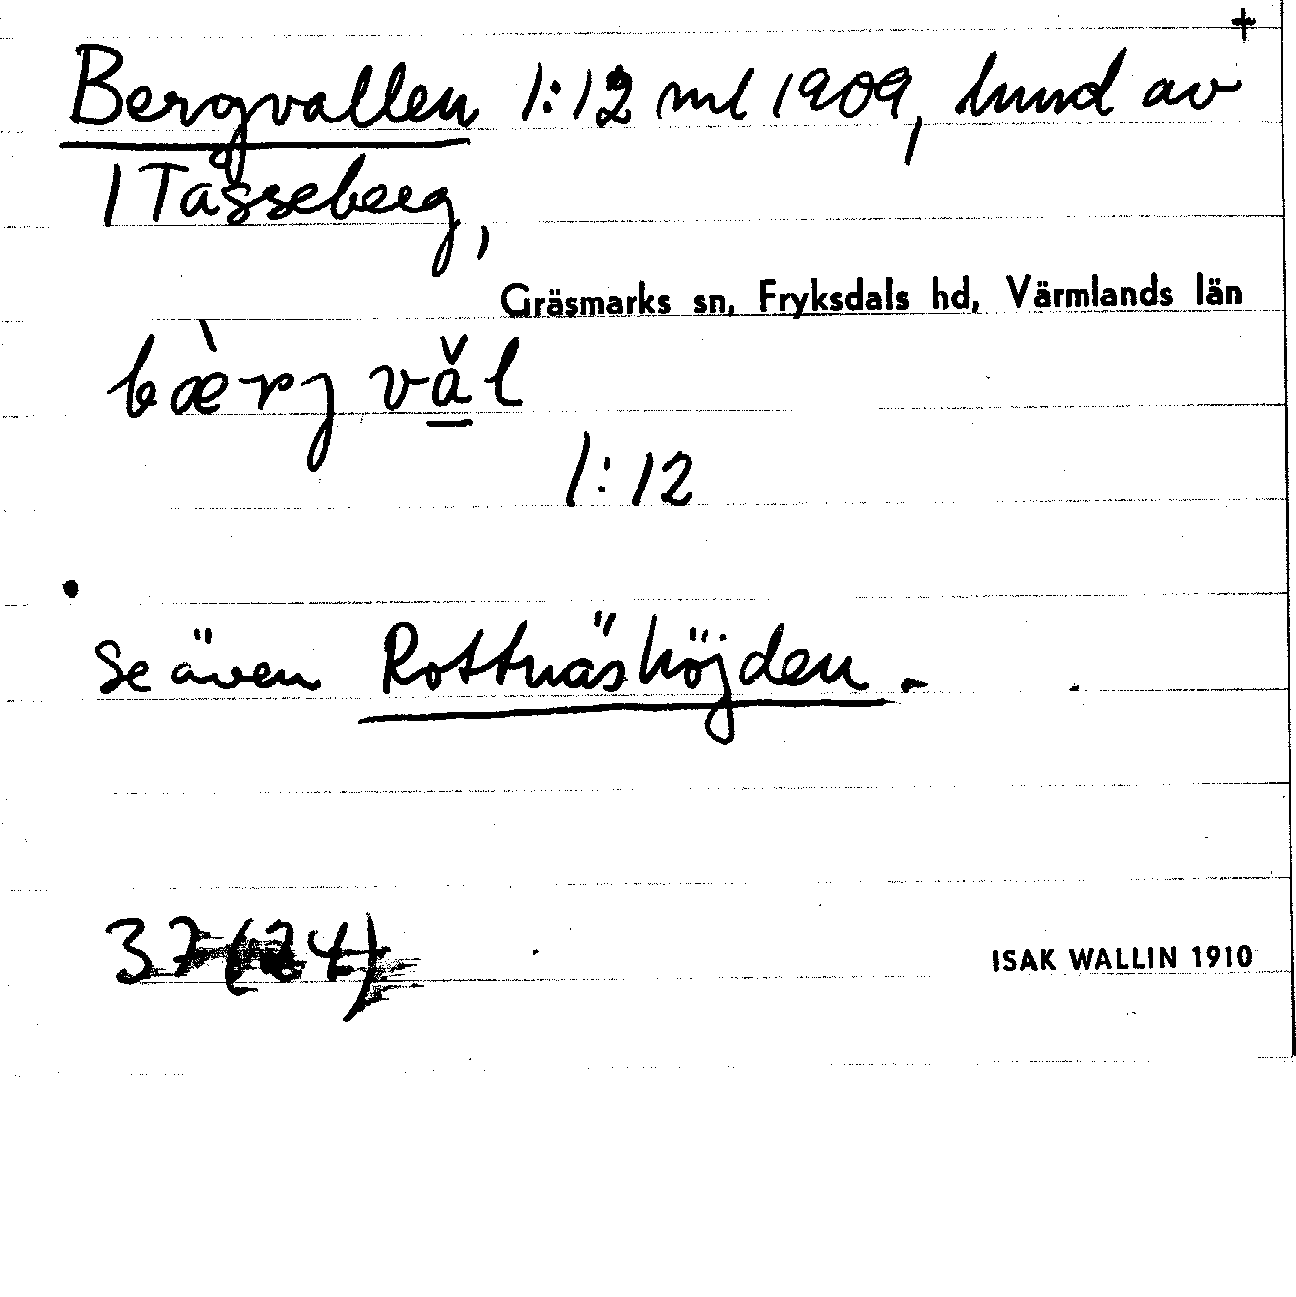 +
Bergvallen 1:12 ml 1909, hmd av
1 Tåsseberg,
Gräsmarks sn, Fryksdals hd, Värmlands län
bæ̀rj vǎ̱l
1:12
Se även Rottnäshöjden.
37 (24)
ISAK WALLIN 1910